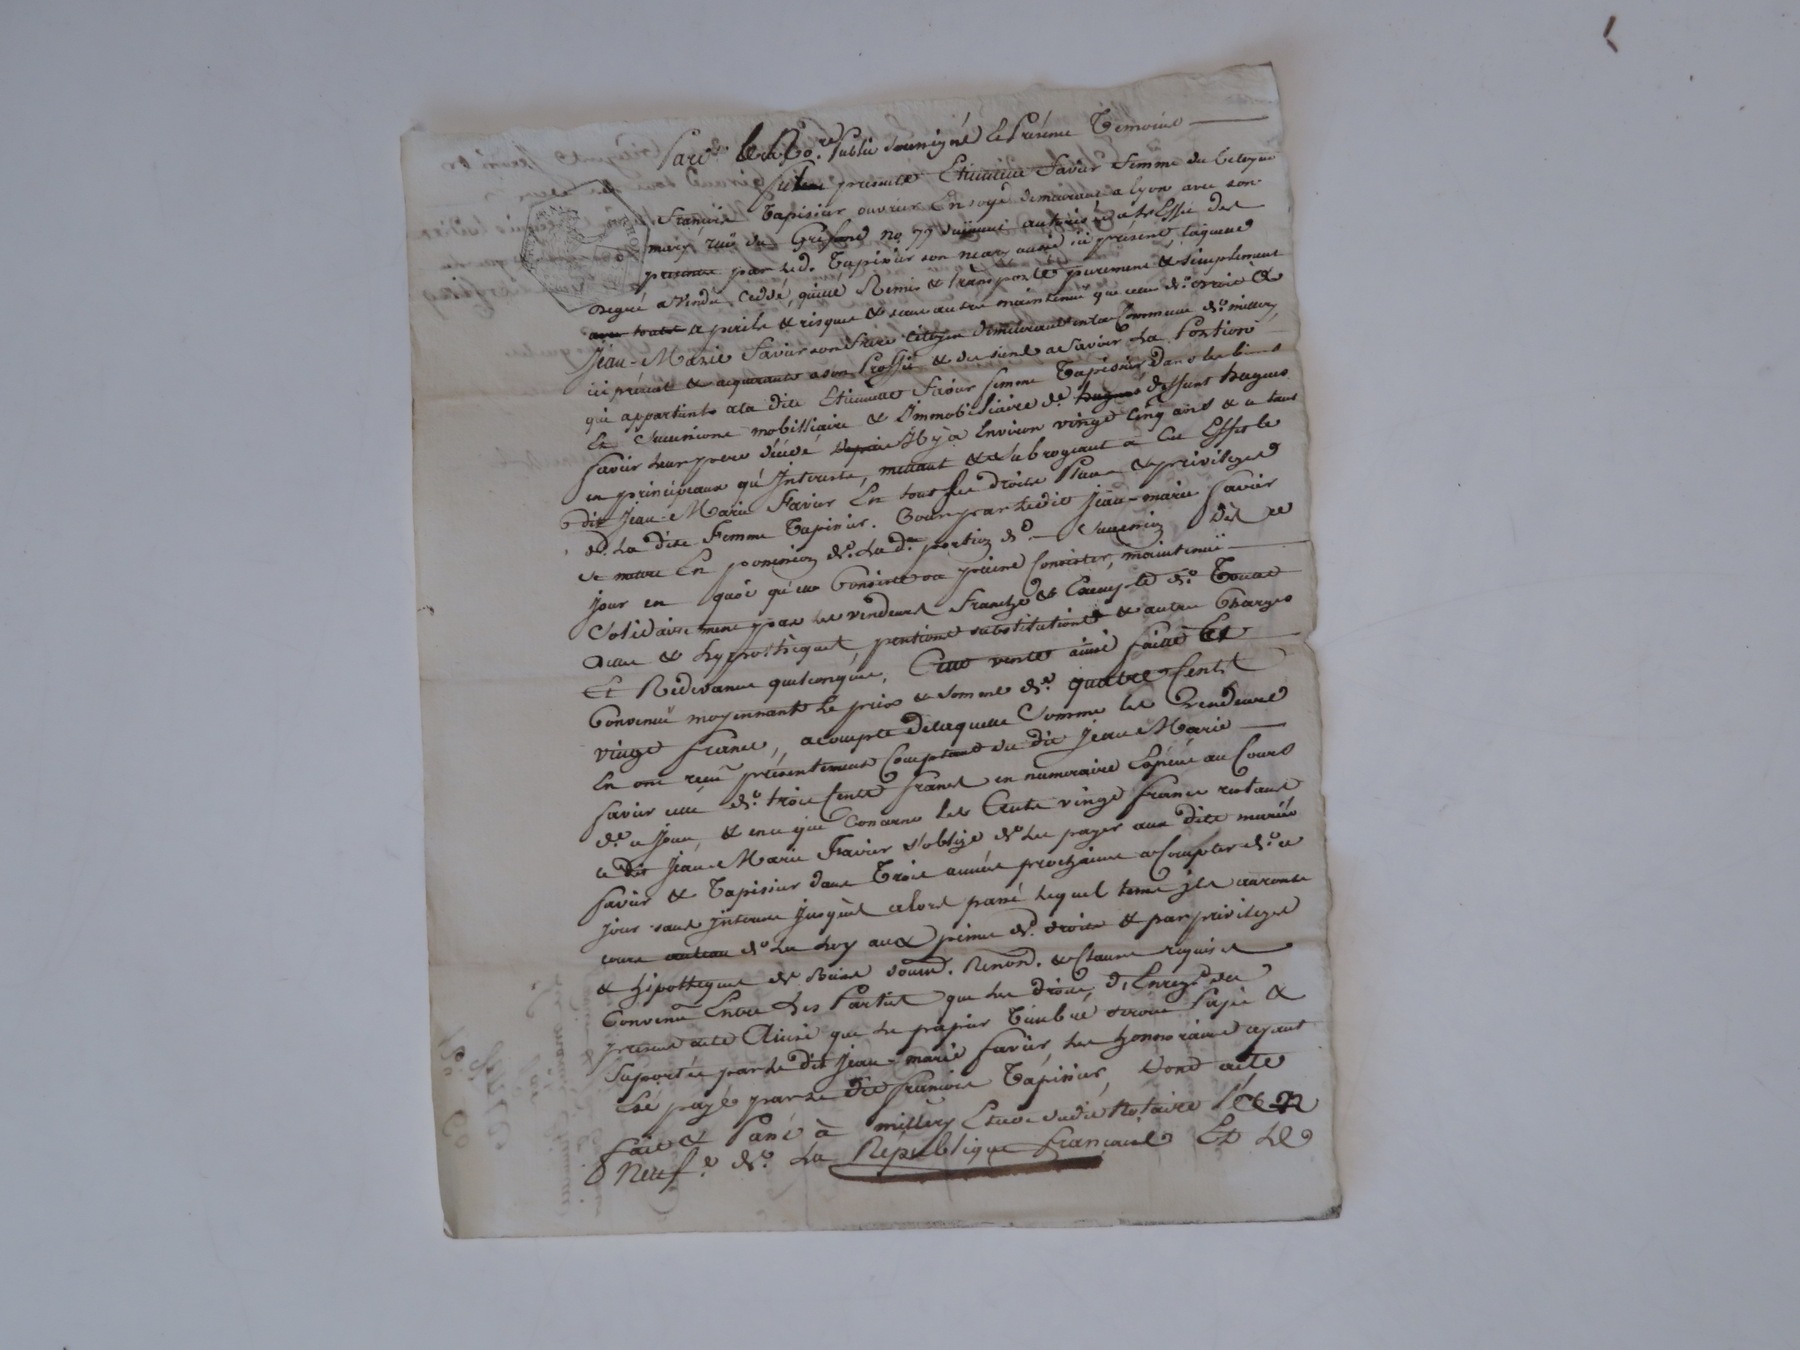 Pardt. le No.re Public soussigné Et Présence Temoins
fut presente Etiennette Favier Femme du Citoyen
François Tapissier ouvrier En soye demeurant a Lyon avec son
mary ruë du Griffond no 77 autorisée a Leffet des
presentes par led. Tapissier son mary aussi ici présent, Laquelle
degré a vendu, Ceddé, quitte Remis & transporté purement & simplement
a perils & risques & sans autre maintenuë que celle de droit &
Jean-Marie Favier son frère Citoyen demeurant en la Commune de millery
ici présent & acquerant a son Proffit & des siens a Savoir La Portion
qui appartint a la dite Etiennette Favier femme Tapissier, Dans les biens
Et Successions mobilliaire & Immobiliaire de deffunt hugues
Favier leur pere décédé Il y a Environ vingt Cinq ans & a tous
en principeaux qu'Interests, mettant & subrogeant a Cet Effet le
dit Jean-Marie Favier En tous ses droits Place & privileges
de La dite Femme Tapissier. Pour par Ledit Jean-marie Favier
se mettre En possession de La dte portion de Succession Dès ce
jour en quoi qu'elle Consiste ou puisse Consister, maintenuë
Solidairement par les vendeurs Franche & Exempte de Toutes
dettes & hyppotheques, pentions substitutions & autres Charges
Et Redevance quelconques, Cette vente ainsi faitte Et
Convenuë moyennant le prix & somme de quatre Cents
vingt francs, acompte delaquelle Somme les Vendeurs
En ont reçu présentement Comptant du dit Jean-Marie
Favier celle de trois Cents francs en numeraire Espéces au Cours
de ce jour, & en ce qui Concerne les Cents vingt francs restans
le dit Jean-Marie Favier s'oblige de les payer aux dits mariés
Favier & Tapissier dans Trois années prochaines a Compter de ce
jour sans Interets jusqu'es alors passé lequel terme ils auronts
cours au taux de La Loy aux peines de droits & par privileges
& hipotheques de Bail soumd. Renond. & Clauses requises
Convenu Entre Les Parties que les droits, d'Enregt. du
present acte Ainsi que Le papier Timbré seront Payés &
Suportés par le dit Jean-marie Favier, les honnoraires ayant
Eté payé par Le dit François Tapissier, Dond acte
fait & Passé à millery Etude dudit Notaire L'an
Neuf.e de La République française Et Le